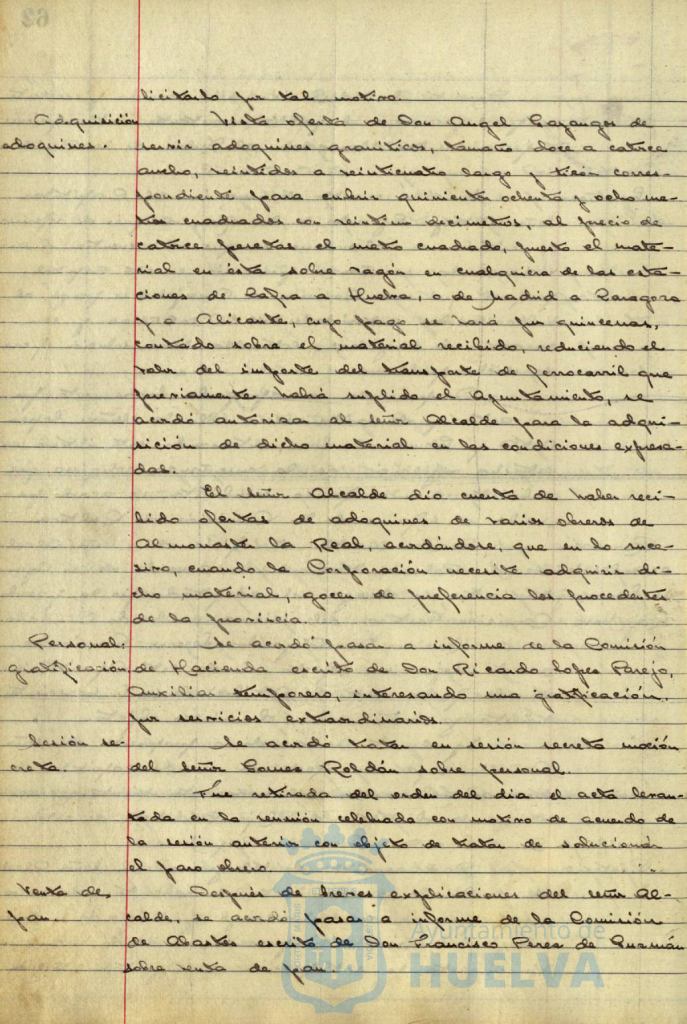 licitarlo por tal motivo.
Adquisición adoquines.
Vista oferta de Don Angel Gayangos de
servir adoquines graníticos, tamaño doce a catorce
ancho, veintidos a veinticuatro largo y tizón corres-
pondiente para cubrir quinientos ochenta y ocho me-
tros cuadrados con veintiun decimetros, al precio de
catorce pesetas el metro cuadrado, puesto el mate-
rial en ésta sobre vagón en cualquiera de las esta-
ciones de Zafra a Huelva, o de Madrid a Zaragoza
y a Alicante, cuyo pago se hará por quincenas,
contado sobre el material recibido, reduciendo el
valor del importe del transporte de ferrocarril que
previamente habrá suplido el Ayuntamiento, se
acordó autorizar al señor Alcalde para la adqui-
sición de dicho material en las condiciones expresa-
das.
El señor Alcalde dio cuenta de haber reci-
bido ofertas de adoquines de varios obreros de
Almonaster la Real, acordándose, que en lo suce-
sivo, cuando la Corporación necesite adquirir di-
cho material, gocen de preferencia los procedentes
de la provincia.
Personal: gratificación.
Se acordó pasar a informe de la Comisión
de Hacienda escrito de Don Ricardo Lopez Parejo,
Auxiliar temporero, interesando una gratificación
por servicios extraordinarios.
Sesión se-
creta.
Se acordó tratar en sesión secreta moción
del señor Gomez Roldán sobre personal.
Fue retirada del orden del dia el acta levan-
tada en la reunión celebrada con motivo de acuerdo de
la sesión anterior con objeto de tratar de solucionar
el paro obrero.
Venta de
pan.
Después de breves explicaciones del señor Al-
calde, se acordó pasar a informe de la Comisión
de Abastos escrito de Don Francisco Perez de Guzmán
sobre venta de pan.
Ayuntamiento de
HUELVA